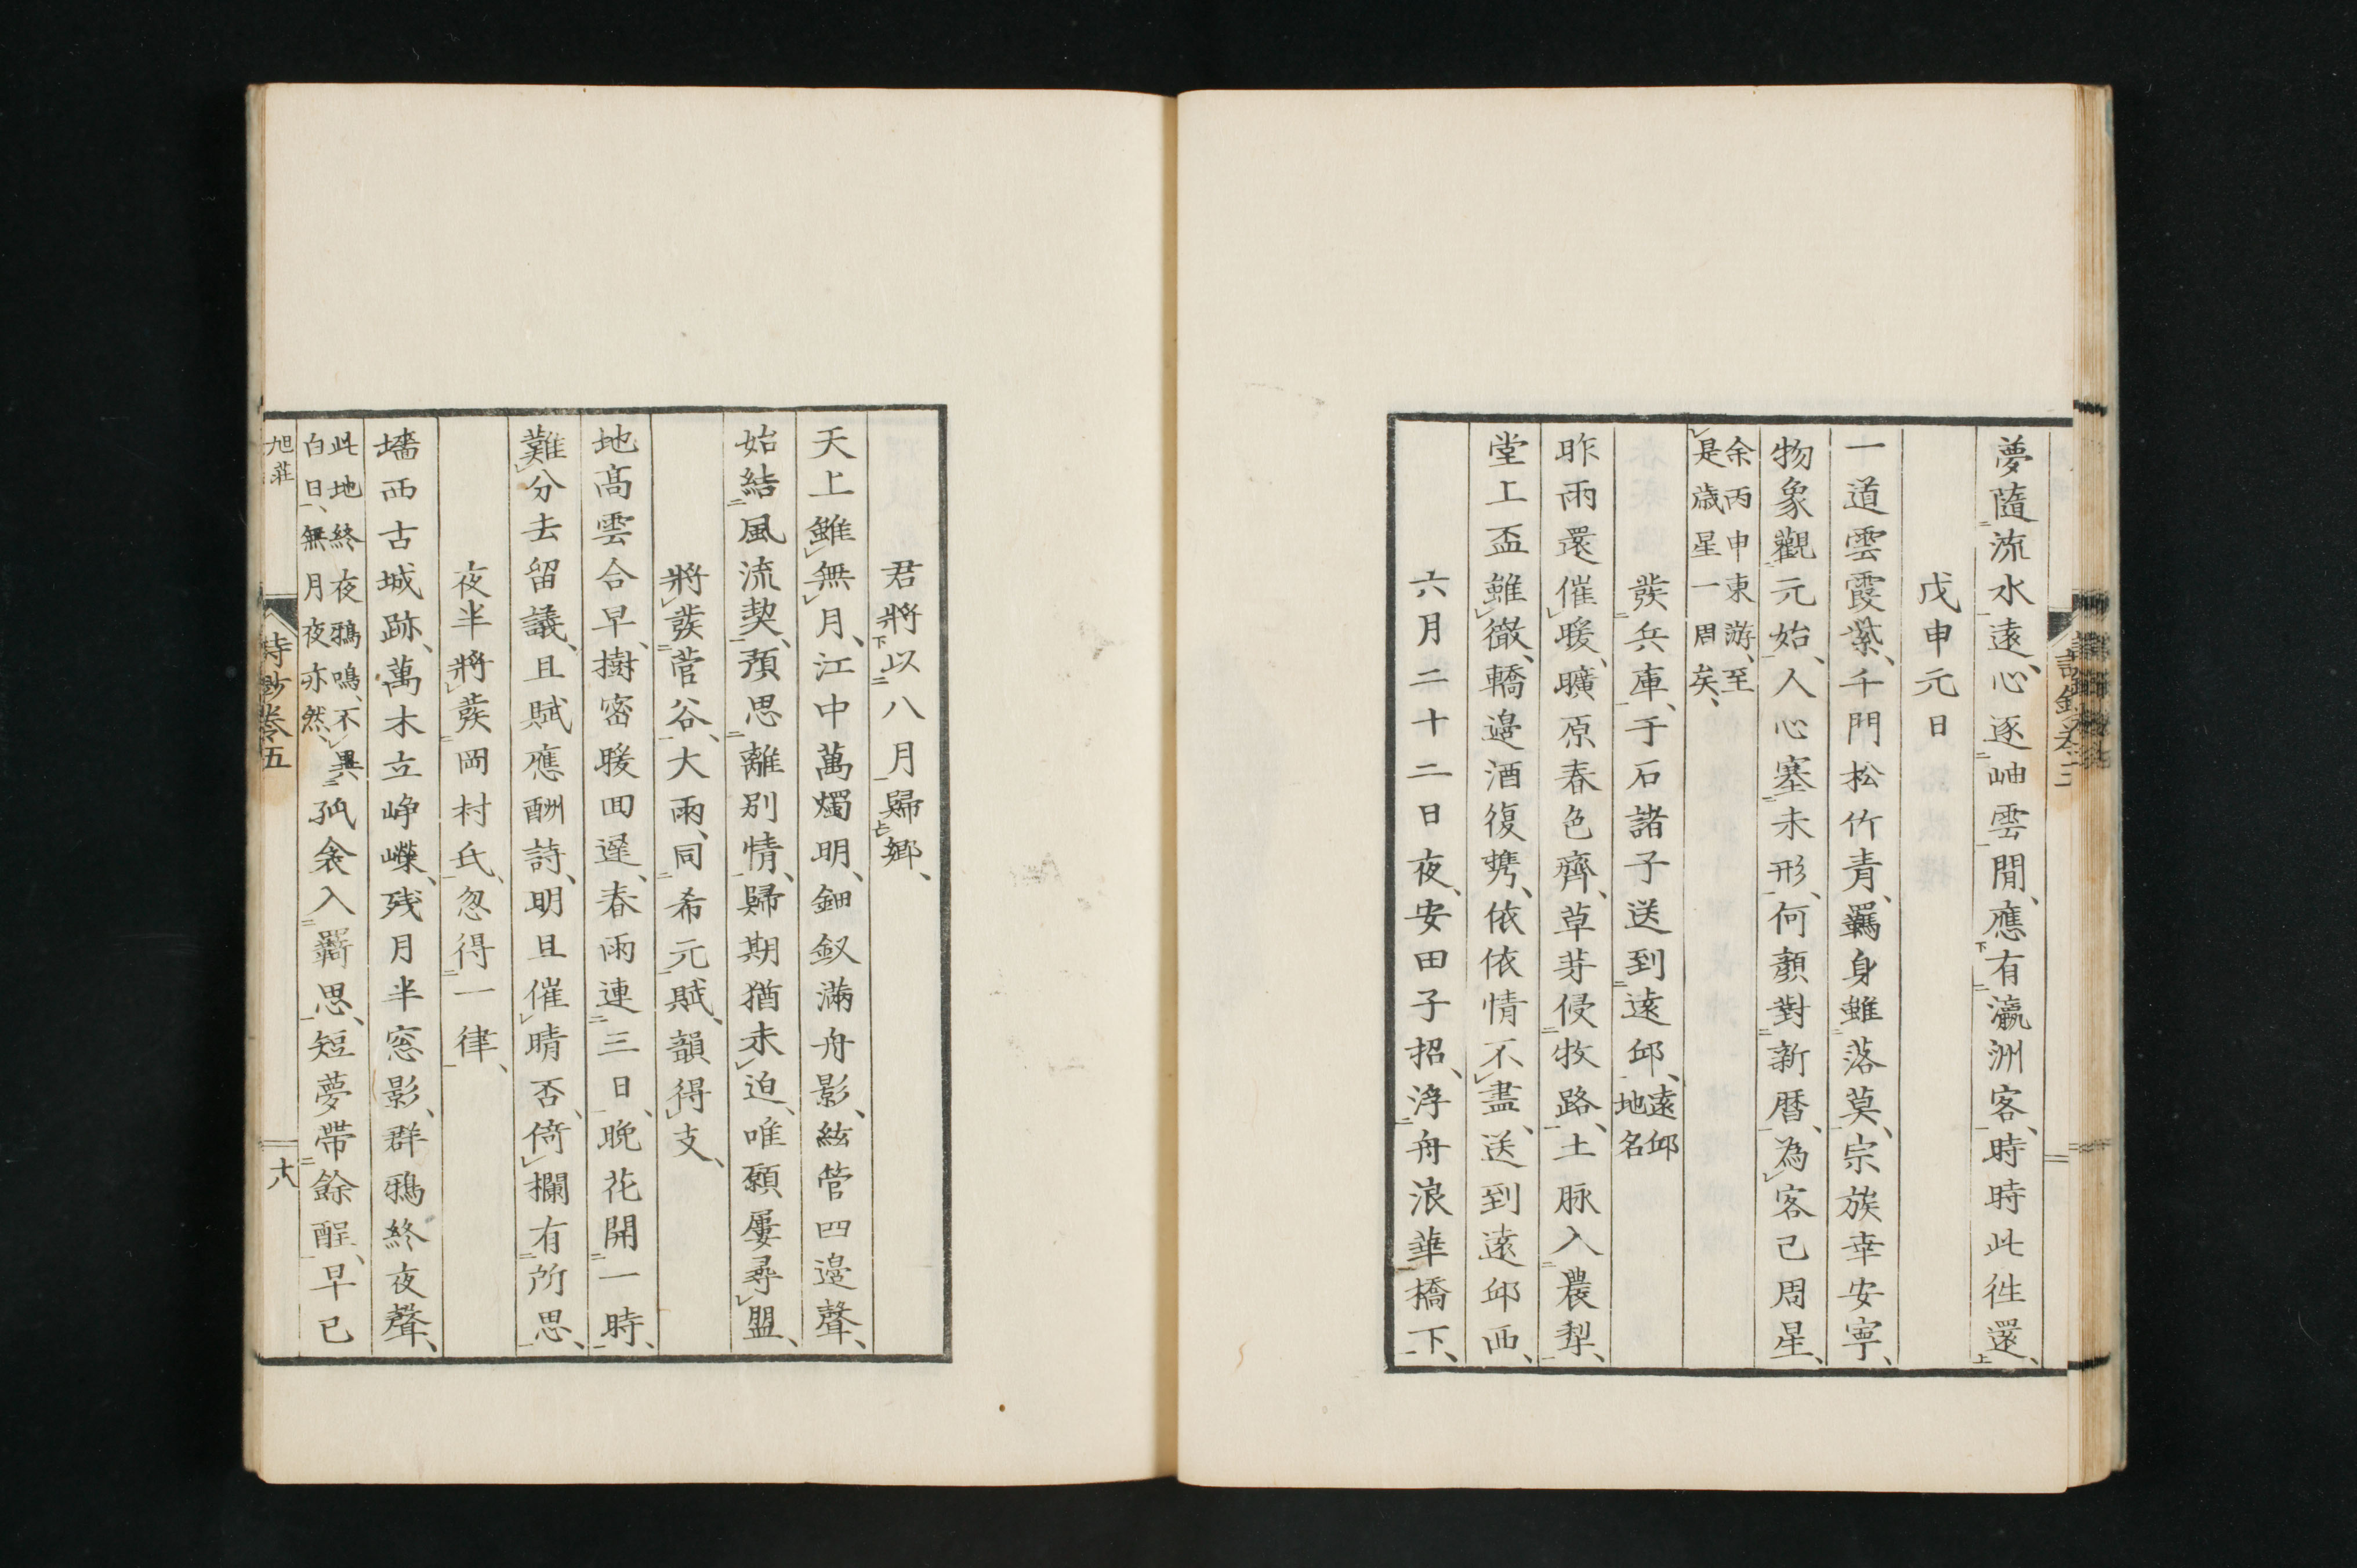 夢隨流水遠、心逐岫雲閒、應有瀛洲客、時時此徃還、
戊申元日
一道雲霞紫、千門松竹青、羈身雖落莫、宗族幸安寧、
物象觀元始、人心塞未形、何顏對新暦、為客已周星、
余丙申東游、至
是歳星一周矣、
發兵庫、于石諸子送到遠邱、遠邱
地名
昨雨還催暖、曠原春色齊、草芽侵牧路、土脉入農犁、
堂上盃雖徹、轎邉酒復携、依依情不盡、送到遠邱西、
六月二十二日夜、安田子招、浮舟浪華橋下、
君將以八月歸鄉、
天上雖無月、江中萬燭明、鈿釵滿舟影、絃管四邉聲、
始結風流契、預思離別情、歸期猶未迫、唯願屢尋盟、
將發菅谷、大雨、同希元賦、韻得支、
地高雲合早、樹密暖回遲、春雨連三日、晩花開一時、
難分去留議、且賦應酬詩、明旦催晴否、倚欄有所思、
夜半將發岡村氏、忽得一律、
墻西古城跡、萬木立崢嶸、残月半窓影、群鴉終夜聲、
此地終夜鴉鳴、不異
白日、無月夜亦然、
孤衾入羇思、短夢帶餘酲、早已
旭莊
詩鈔卷五
十八